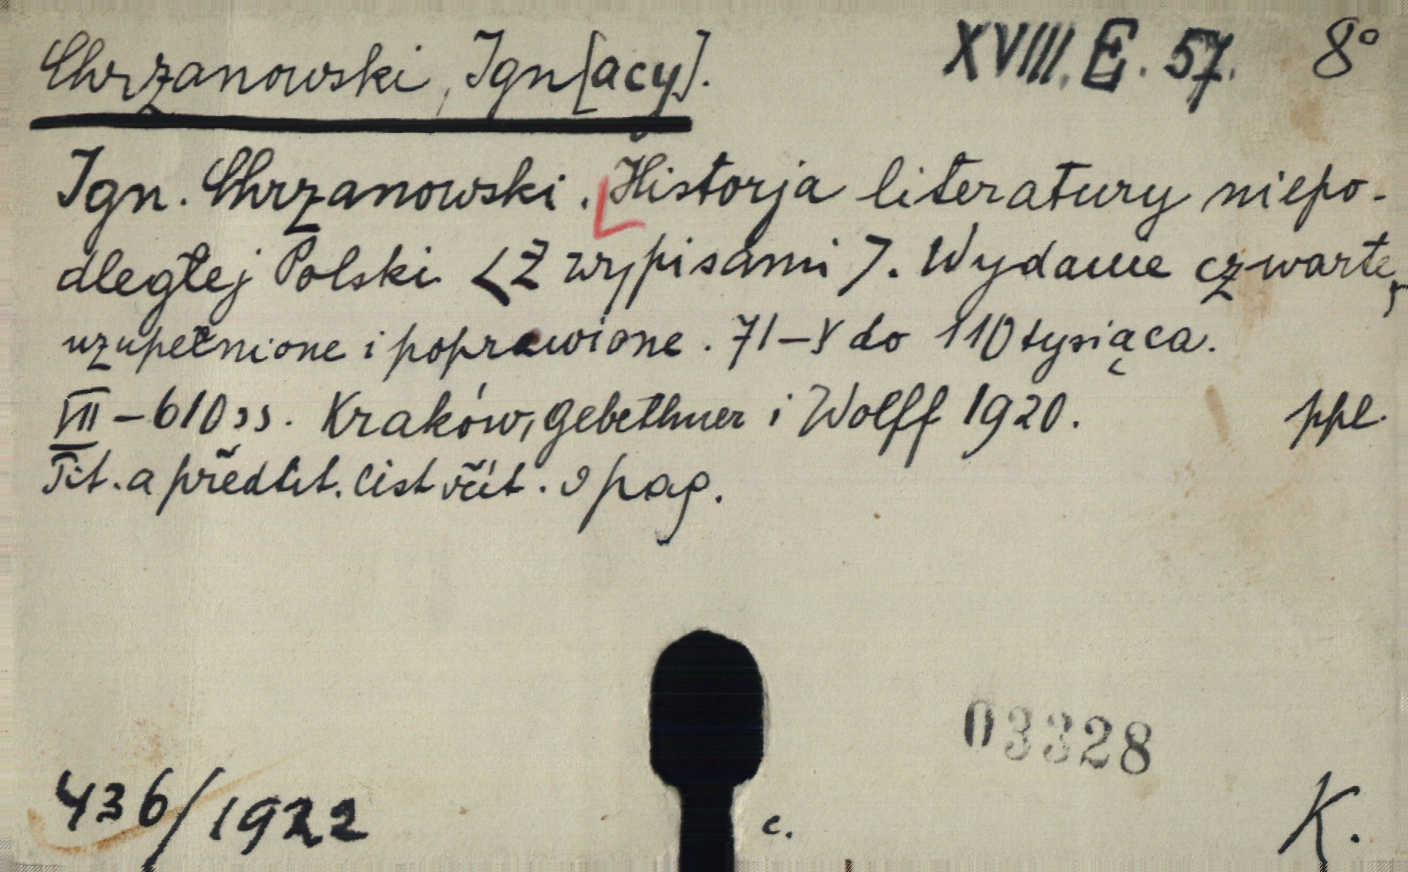 Chrzanowski, Ign[acy]. XVIII. E. 57. 8°
Ign. Chrzanowski. Historja literatury niepo-
dległej Polski <Z wypisami>. Wydanie czwarte,
uzupełnione i poprawione. 71-y do 110 tysiąca.
VII - 610 ss. Kraków, Gebethner i Wolff 1920. ppl.
Tit. a předtit. list včít. v pag.
03328
436/1922 c. K.